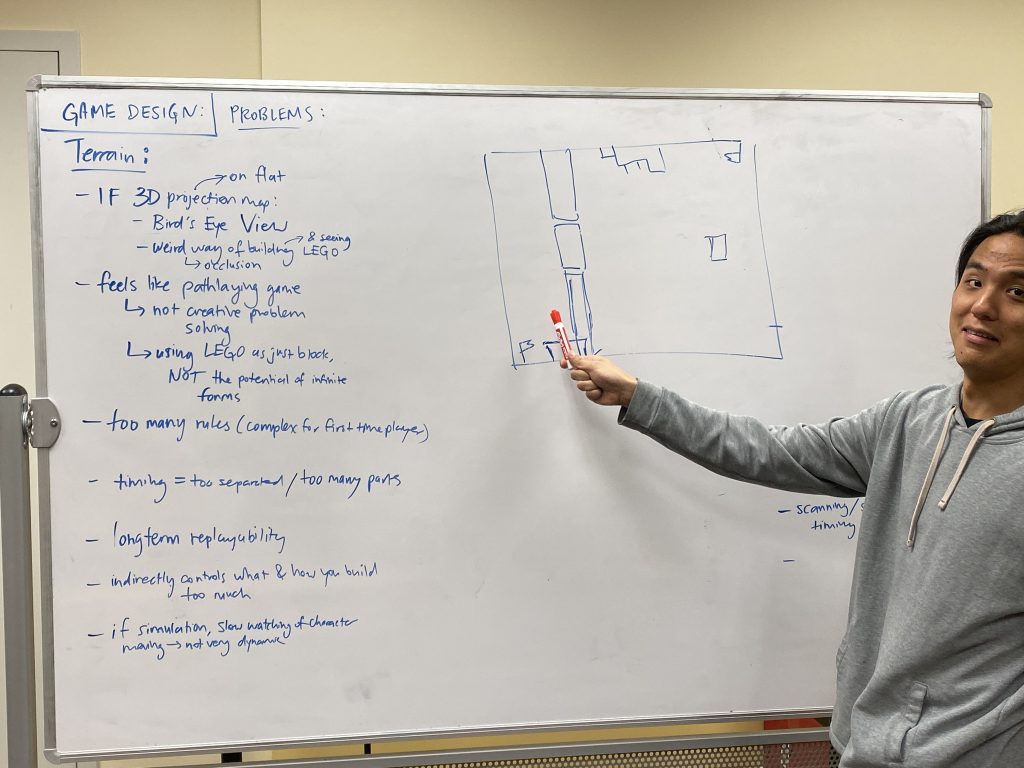 GAME DESIGN: PROBLEMS:
Terrain:
on flat
- IF 3D projection map:
- Bird's Eye View
& seeing
- weird way of building LEGO
occlusion
- feels like pathlaying game
not creative problem
solving
using LEGO as just block,
NOT the potential of infinite
forms
- too many rules (complex for first time player)
- timing = too separated / too many parts
- longterm replayability
- indirectly controls what & how you build
too much
- if simulation, slow watching of character
moving → not very dynamic
- scanning/
timing
-